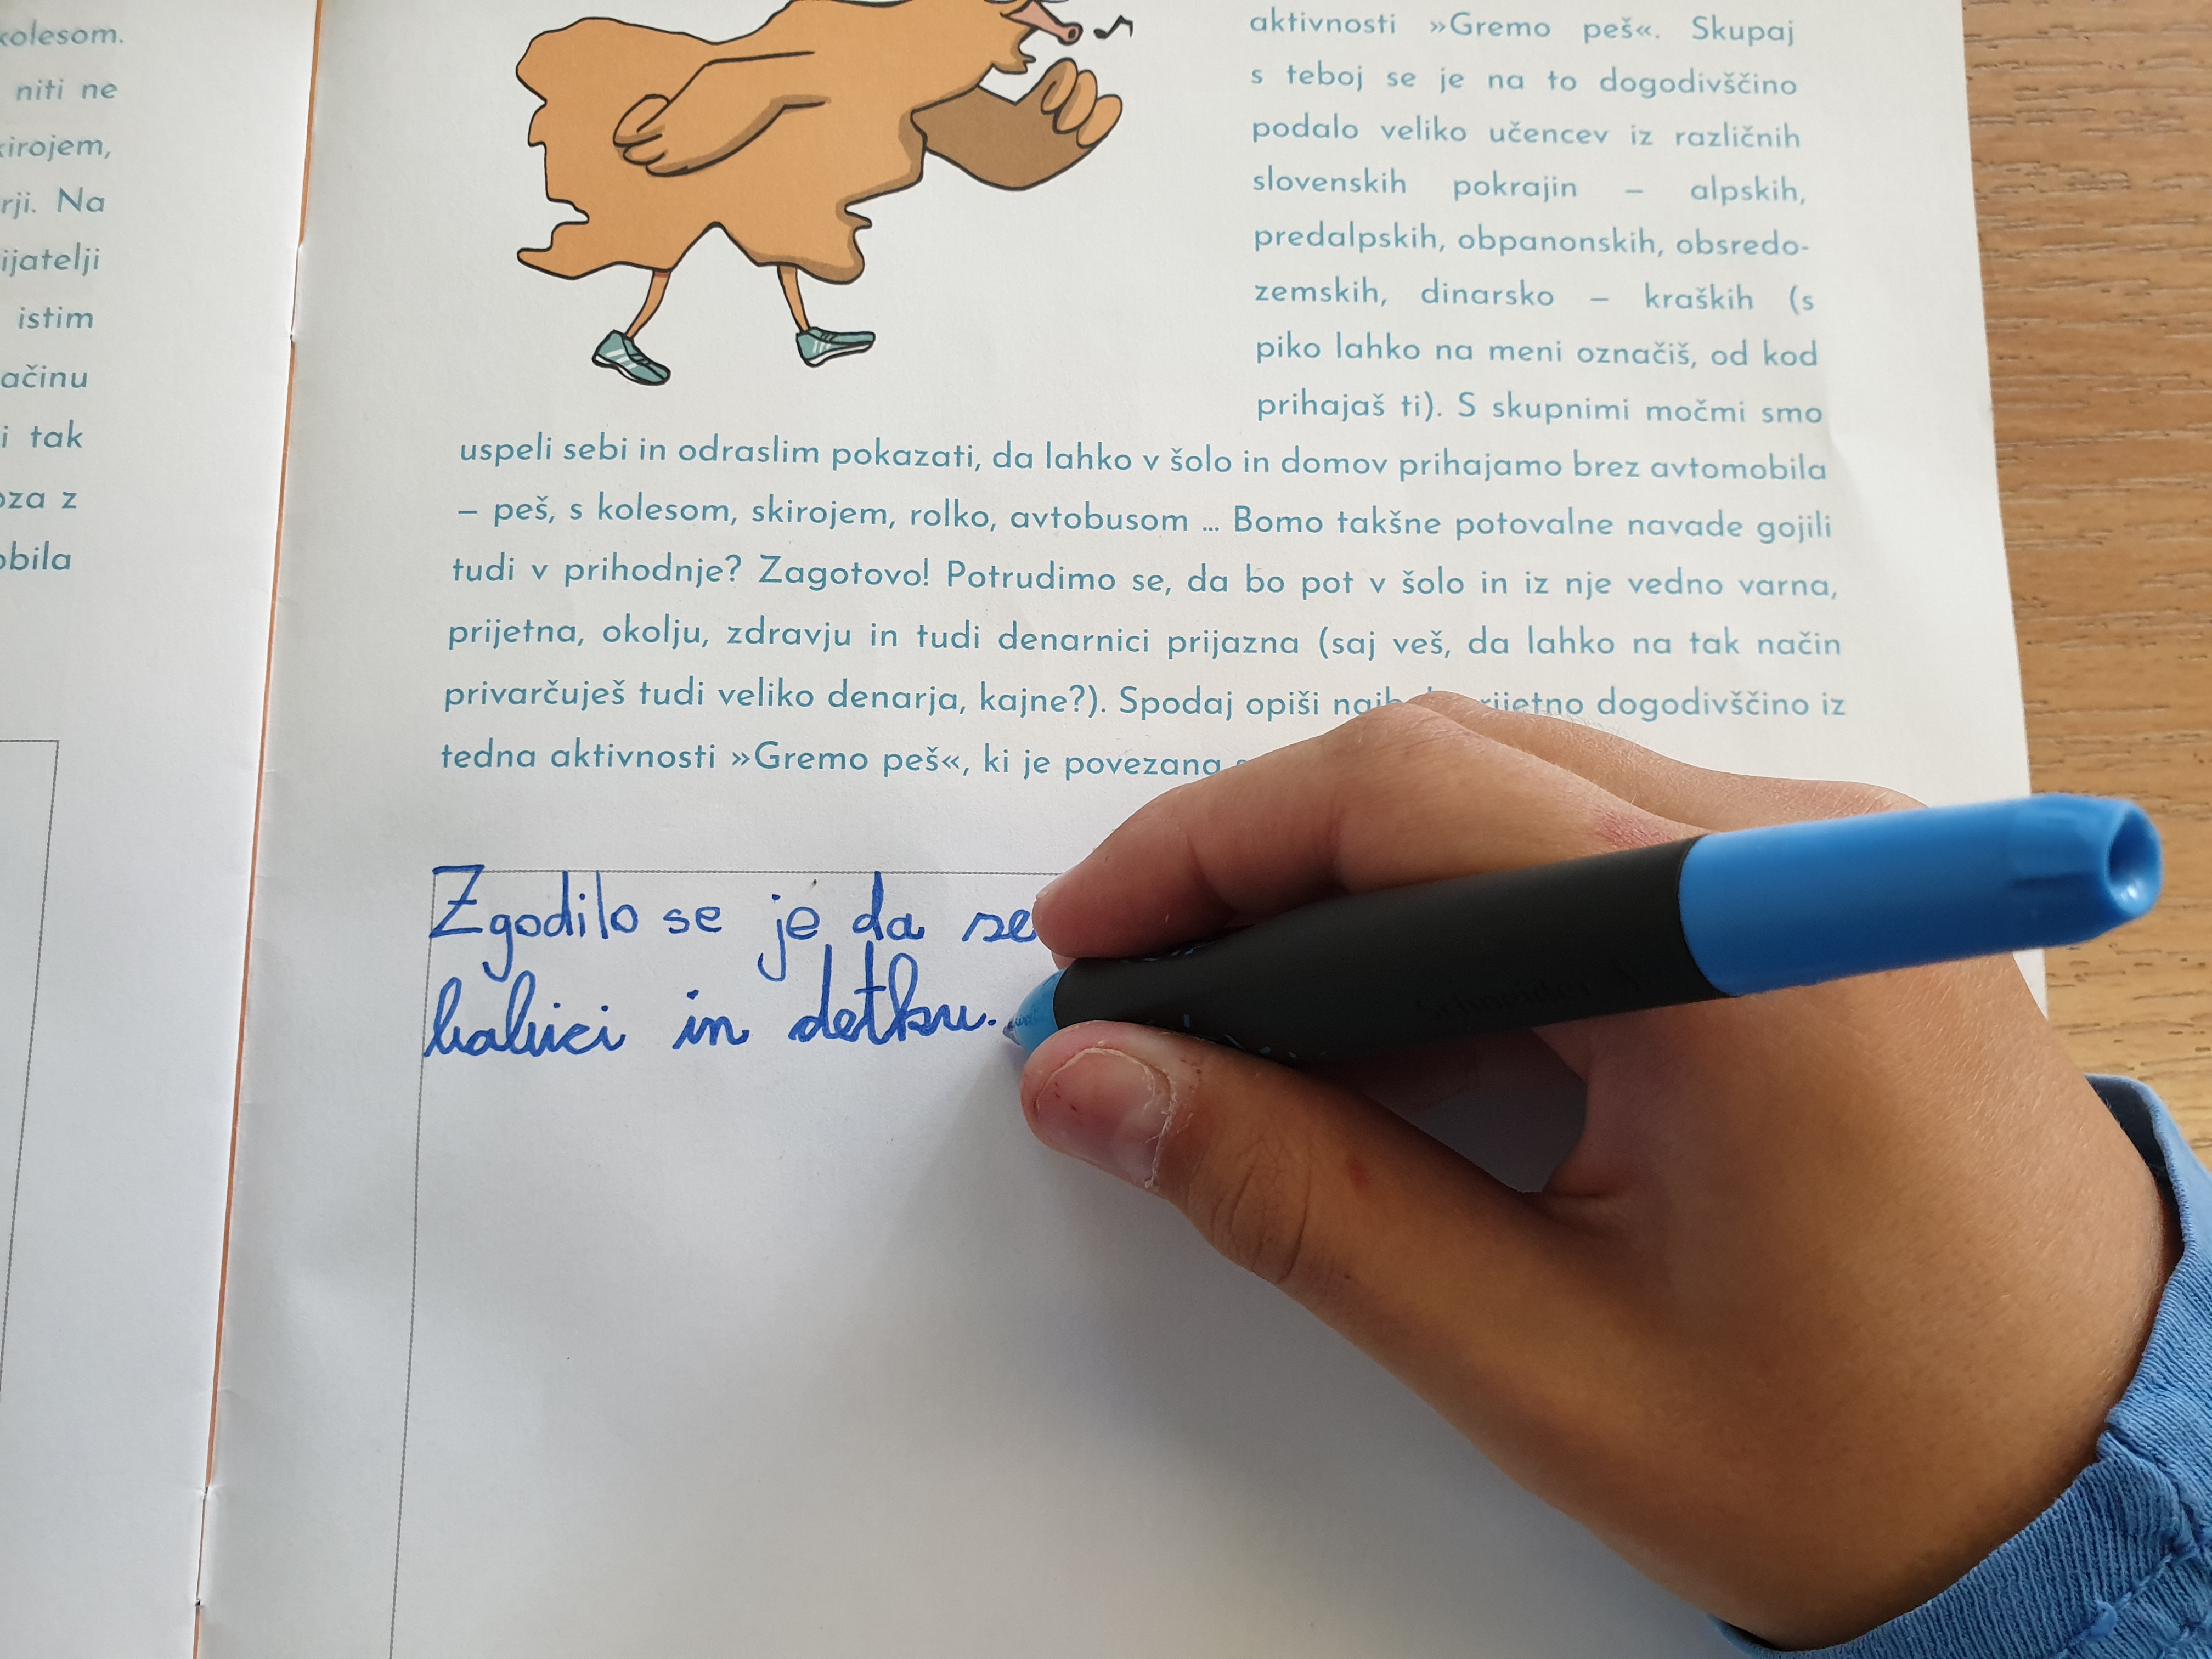 kolesom.
niti ne
kirojem,
rji. Na
ijatelji
istim
ačinu
i tak
oza z
obila
aktivnosti »Gremo peš«. Skupaj
s teboj se je na to dogodivščino
podalo veliko učencev iz različnih
slovenskih pokrajin – alpskih,
predalpskih, obpanonskih, obsredo-
zemskih, dinarsko – kraških (s
piko lahko na meni označiš, od kod
prihajaš ti). S skupnimi močmi smo
uspeli sebi in odraslim pokazati, da lahko v šolo in domov prihajamo brez avtomobila
– peš, s kolesom, skirojem, rolko, avtobusom ... Bomo takšne potovalne navade gojili
tudi v prihodnje? Zagotovo! Potrudimo se, da bo pot v šolo in iz nje vedno varna,
prijetna, okolju, zdravju in tudi denarnici prijazna (saj veš, da lahko na tak način
privarčuješ tudi veliko denarja, kajne?). Spodaj opiši dogodivščino iz
tedna aktivnosti »Gremo peš«, ki je povezana
Zgodilo se je da se
babici in detku.
Schneider